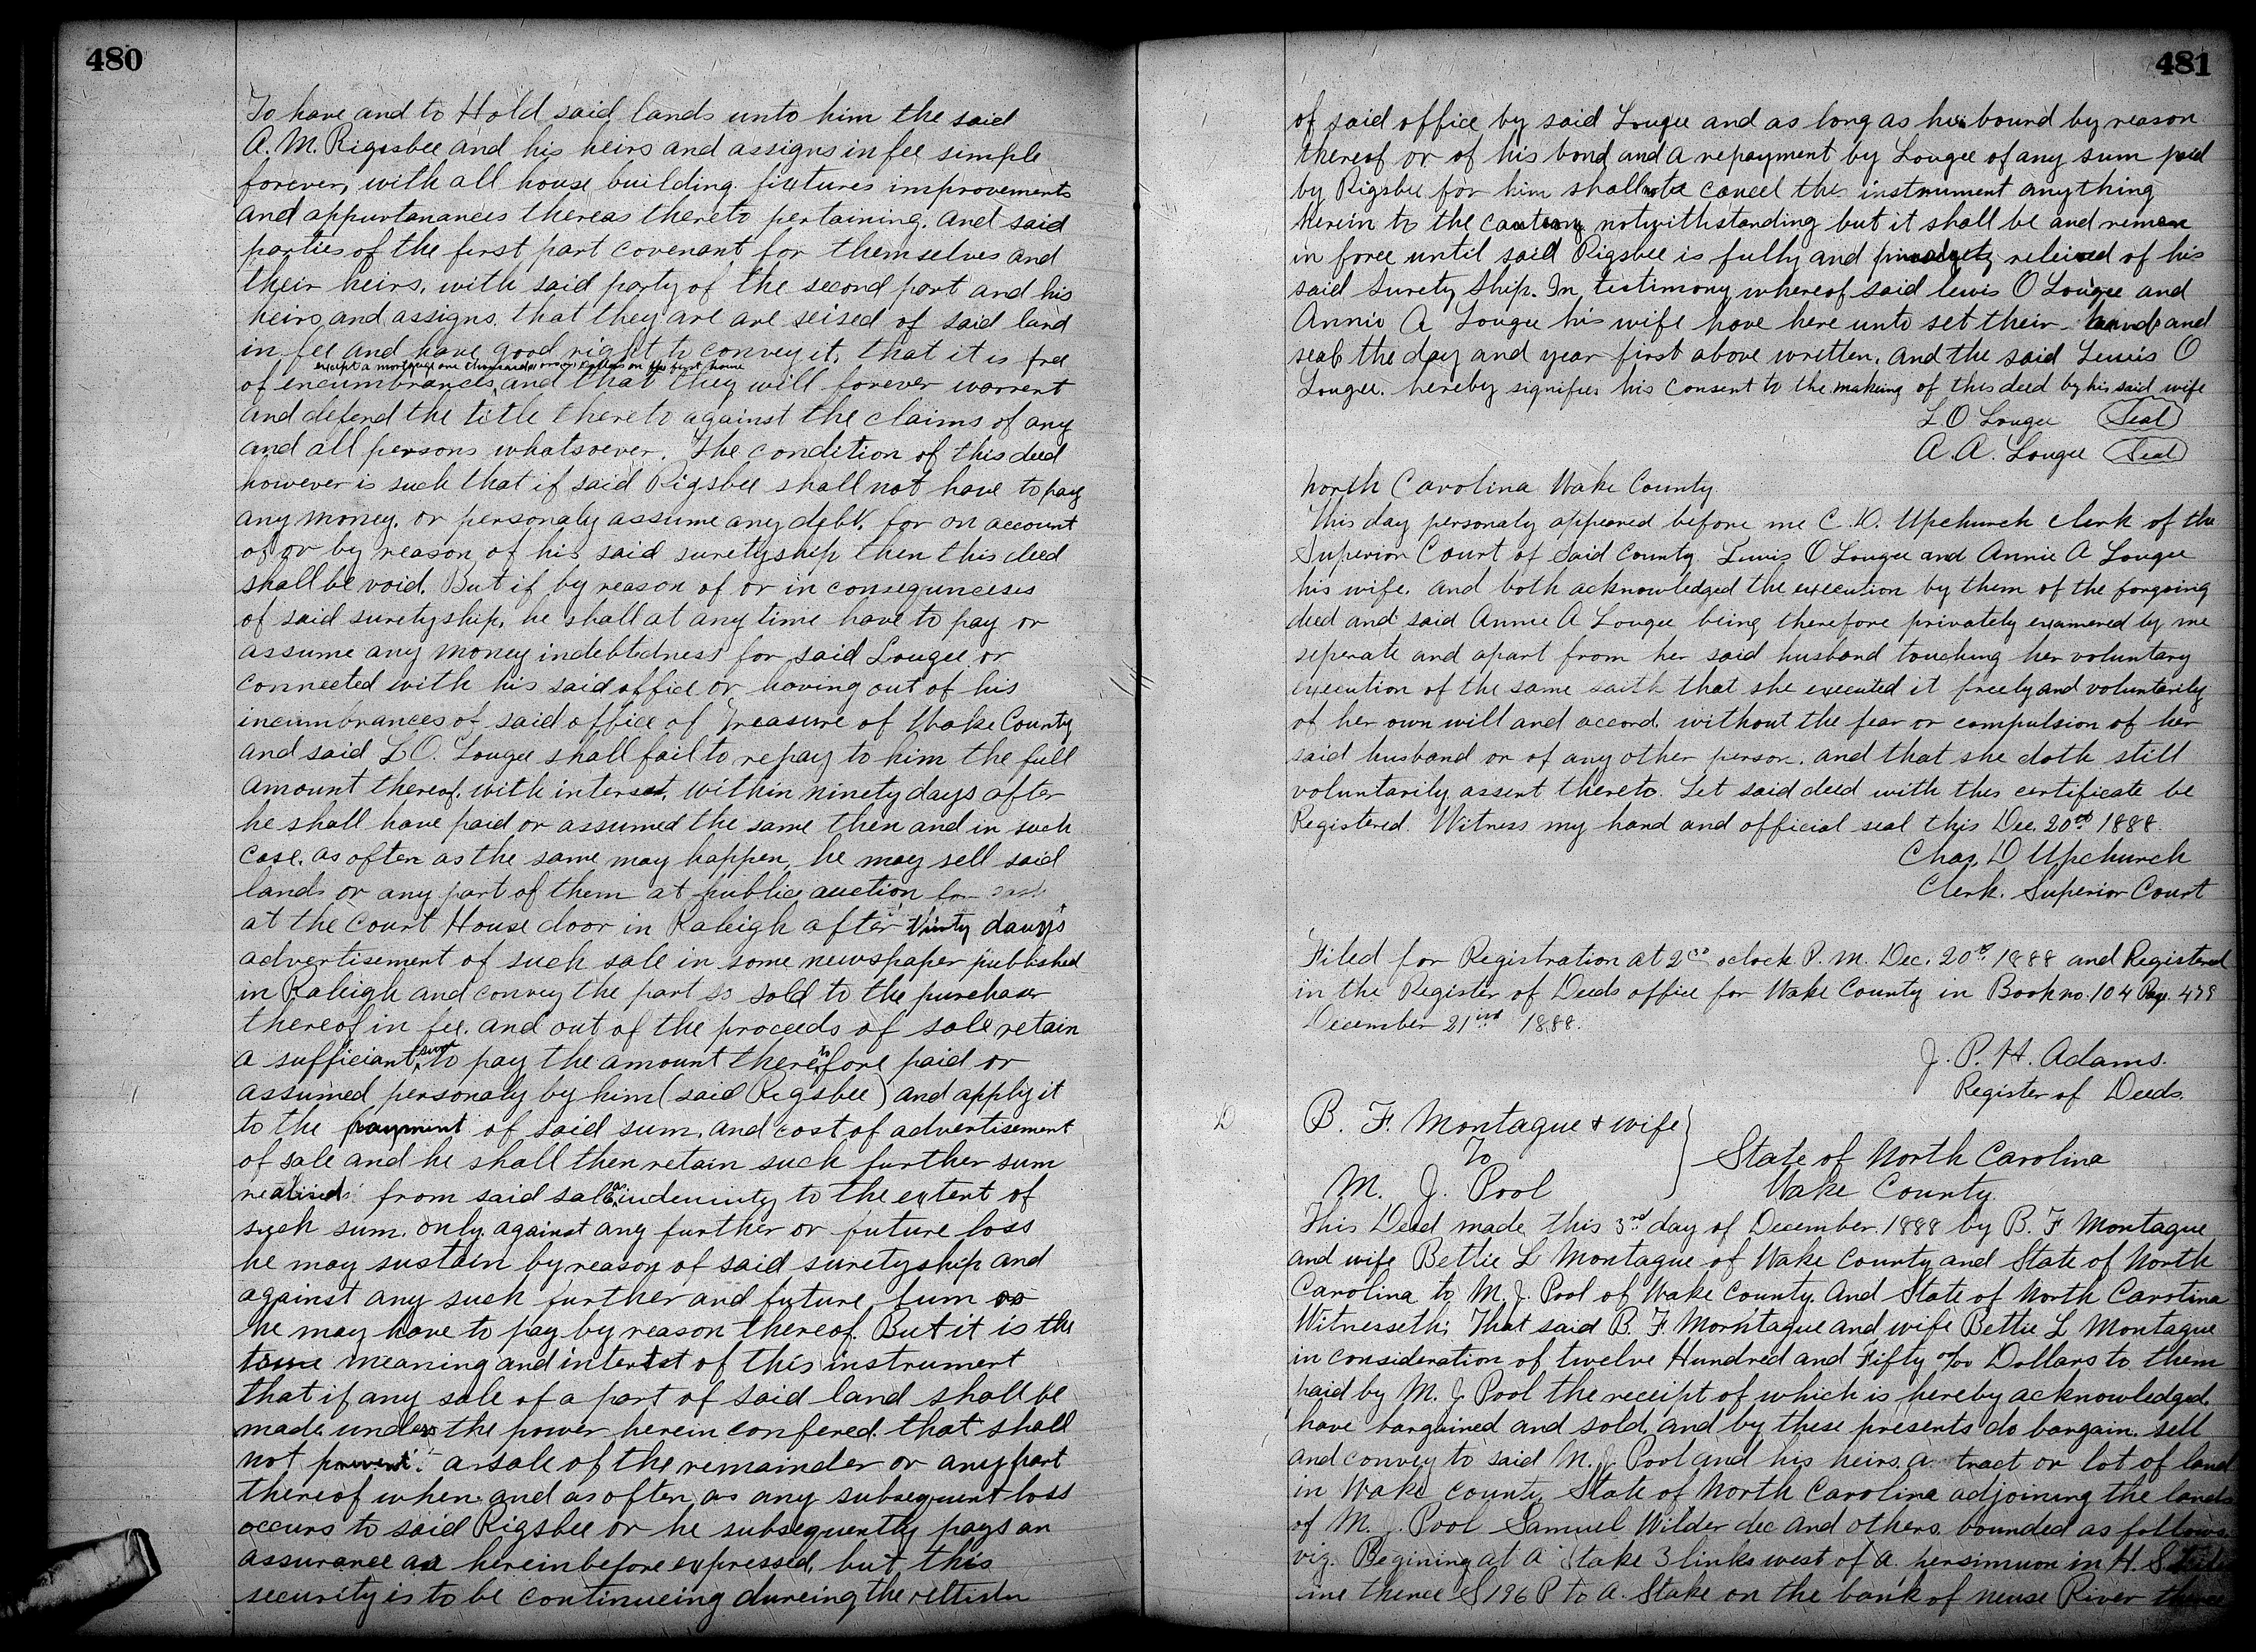 480
To have and to Hold said lands unto him the said
A. M. Rigsbee and his heirs and assigns in fee simple
forever, with all house building fixtures improvements
and appurtanances thereas thereto pertaining. And said
parties of the first part covenant for themselves and
their heirs, with said party of the second part and his
heirs and assigns. that they are are seised of said land
in fee and have good right to convey it, that it is free
except a mortgage one thousand on first house
of encumbrances, and that they will forever warrent
and defend the title thereto against the claims of any
and all persons whatsoever. The condition of this deed
however is such that if said Rigsbee shall not have to pay
any money. or personaly assume any debt. for on account
of or by reason of his said suretyship then this deed
shall be void. But if by reason of or in consequnceses
of said suretyship, he shall at any time have to pay or
assume any money indebtedness for said Lougee or
connected with his said office or having out of his
incumbrances of said office of Treasure of Wake County
and said L O. Lougee shall fail to repay to him the full
amount thereof, with interest, within ninety days after
he shall have paid or assumed the same then and in such
case. as often as the same may happen, he may sell said
lands or any part of them at public auction for cash
at the Court House door in Raleigh after thirty days
advertisement of such sale in some newspaper published
in Raleigh and convey the part so sold to the purchaser
thereof in fee. and out of the proceeds of sale retain
a sufficiant sum to pay the amount theretofore paid or
assumed personaly by him (said Rigsbee) and apply it
to the payment of said sum, and cost of advertisement
of sale and he shall then retain such further sum
realised from said sale as indemnity to the extent of
such sum. only. against any further or future loss
he may sustain by reason of said suretyship and
against any such further and future sum as
he may have to pay by reason thereof. But it is the
true meaning and intertst of this instrument
that if any sale of a part of said land shall be
made under the power herein confered. that shall
not prevent a sale of the remainder or any part
thereof when and as often as any subsequent loss
occurs to said Rigsbee or he subsequently pays an
assurance as hereinbefore expressed, but this
security is to be continueing dureing the
481
of said office by said Lougee and as long as his bound by reason
thereof or of his bond and a repayment by Lougee of any sum paid
by Rigsbee for him shall not cancel this instrument anything
herein to the contrary notwithstanding but it shall be and remain
in force until said Rigsbee is fully and releived of his
said Surety ship. In testimony whereof said Lewis O Lougee and
Annie A Lougee his wife have here unto set their hands and
seals the day and year first above written. And the said Lewis O
Lougee. hereby signifies his consent to the makeing of this deed by his said wife
L O Lougee (Seal)
A. A. Lougee (Seal)
North Carolina Wake County
This day personaly appeared before me C. D. Upchurch clerk of the
Superior Court of Said County Lewis O Lougee and Annie A Lougee
his wife. and both acknowledged the execution by them of the forgoing
deed and said Annie A Lougee being therefore privately examered by me
seperate and apart from her said husband touching her voluntary
execution of the same saith that she executed it freely and voluntarily
of her own will and accord. without the fear or compulsion of her
said husband or of any other person. and that she doth still
voluntarily assent thereto. Let said deed with this certificate be
Registered. Witness my hand and official seal this Dec. 20th 1888.
Chas. D Upchurch
Clerk. Superior Court
Filed for Registration at 2 oclock P. M. Dec. 20th 1888 and Registered
in the Register of Deeds office for Wake County in Book no. 104 Page 479
December 21 1888.
J. P. H. Adams.
Register of Deeds.
D
B. F. Montague & wife
To
State of North Carolina
M. J. Pool
Wake County
This Deed made this 3rd day of December. 1888 by B. F Montague
and wife Bettie L Montague of Wake County and State of North
Carolina to M. J. Pool of Wake County. And State of North Carolina
Witnesseth; That said B. F. Montague and wife Bettie L Montague
in consideration of twelve Hundred and Fifty o/oo Dollars to them
paid by M. J. Pool the receipt of which is hereby acknowledged.
have bargained and sold, and by these presents do bargain. sell
and convey to said M. J. Pool and his heirs. a tract or lot of land
in Wake County State of North Carolina adjoining the lands
of M. J. Pool Samuel Wilder dec and others. bounded as follows.
viz. Begining at a Stake 3 links west of a persimmon in H. S.
line thence S 196 P to a Stake on the bank of neuse River thence